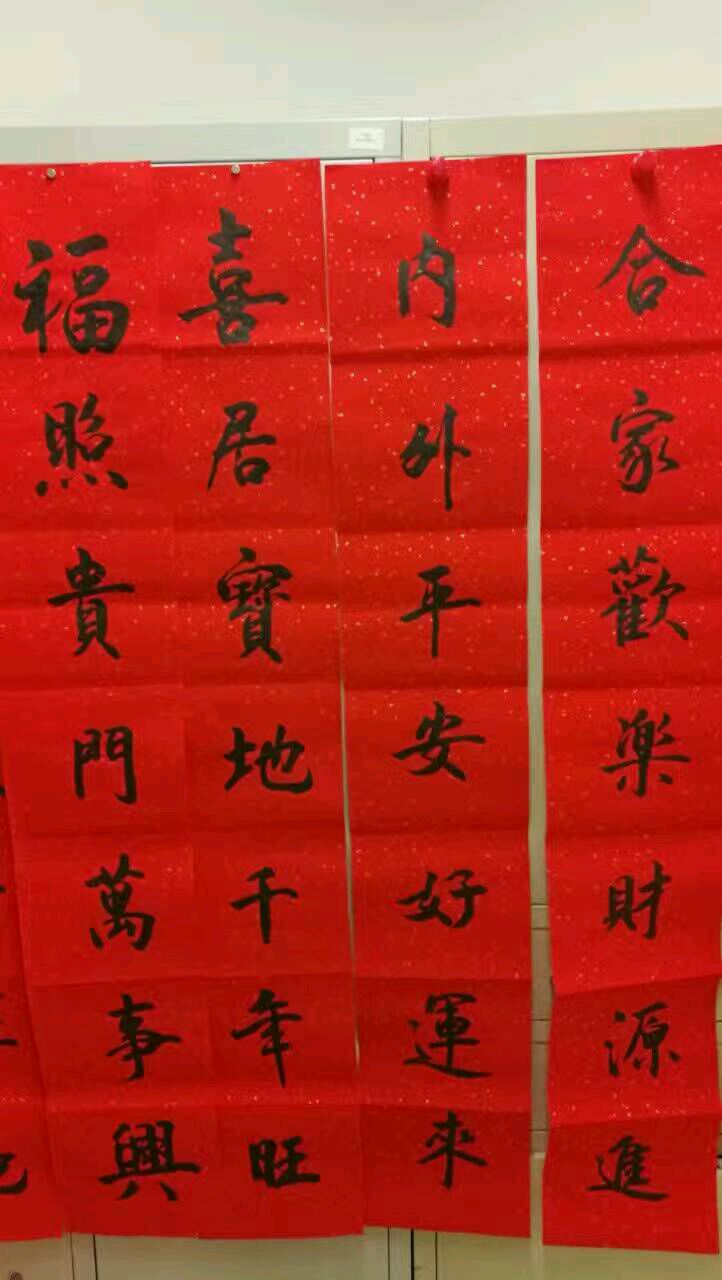 合家歡樂財源進
內外平安好運來
喜居寶地千年旺
福照貴門萬事興